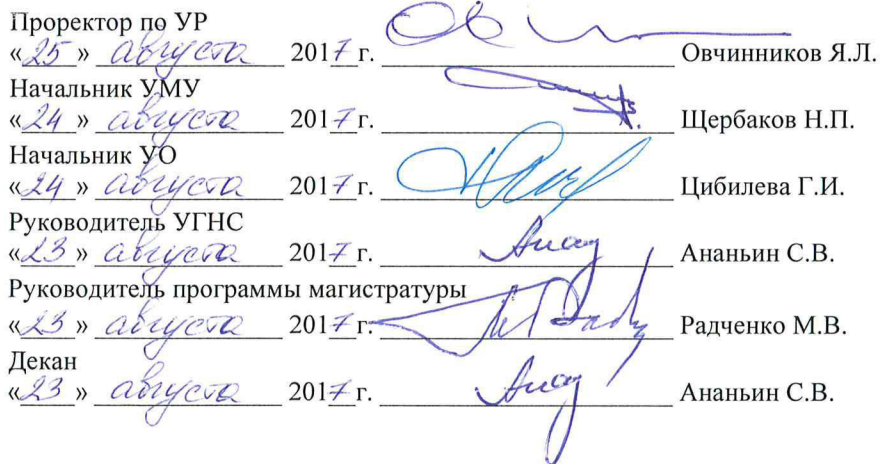 Проректор по УР
«25» августа 2017 г. Овчинников Я.Л.
Начальник УМУ
«24» августа 2017 г. Щербаков Н.П.
Начальник УО
«24» августа 2017 г. Цибилева Г.И.
Руководитель УГНС
«23» августа 2017 г. Ананьин С.В.
Руководитель программы магистратуры
«23» августа 2017 г. Радченко М.В.
Декан
«23» августа 2017 г. Ананьин С.В.